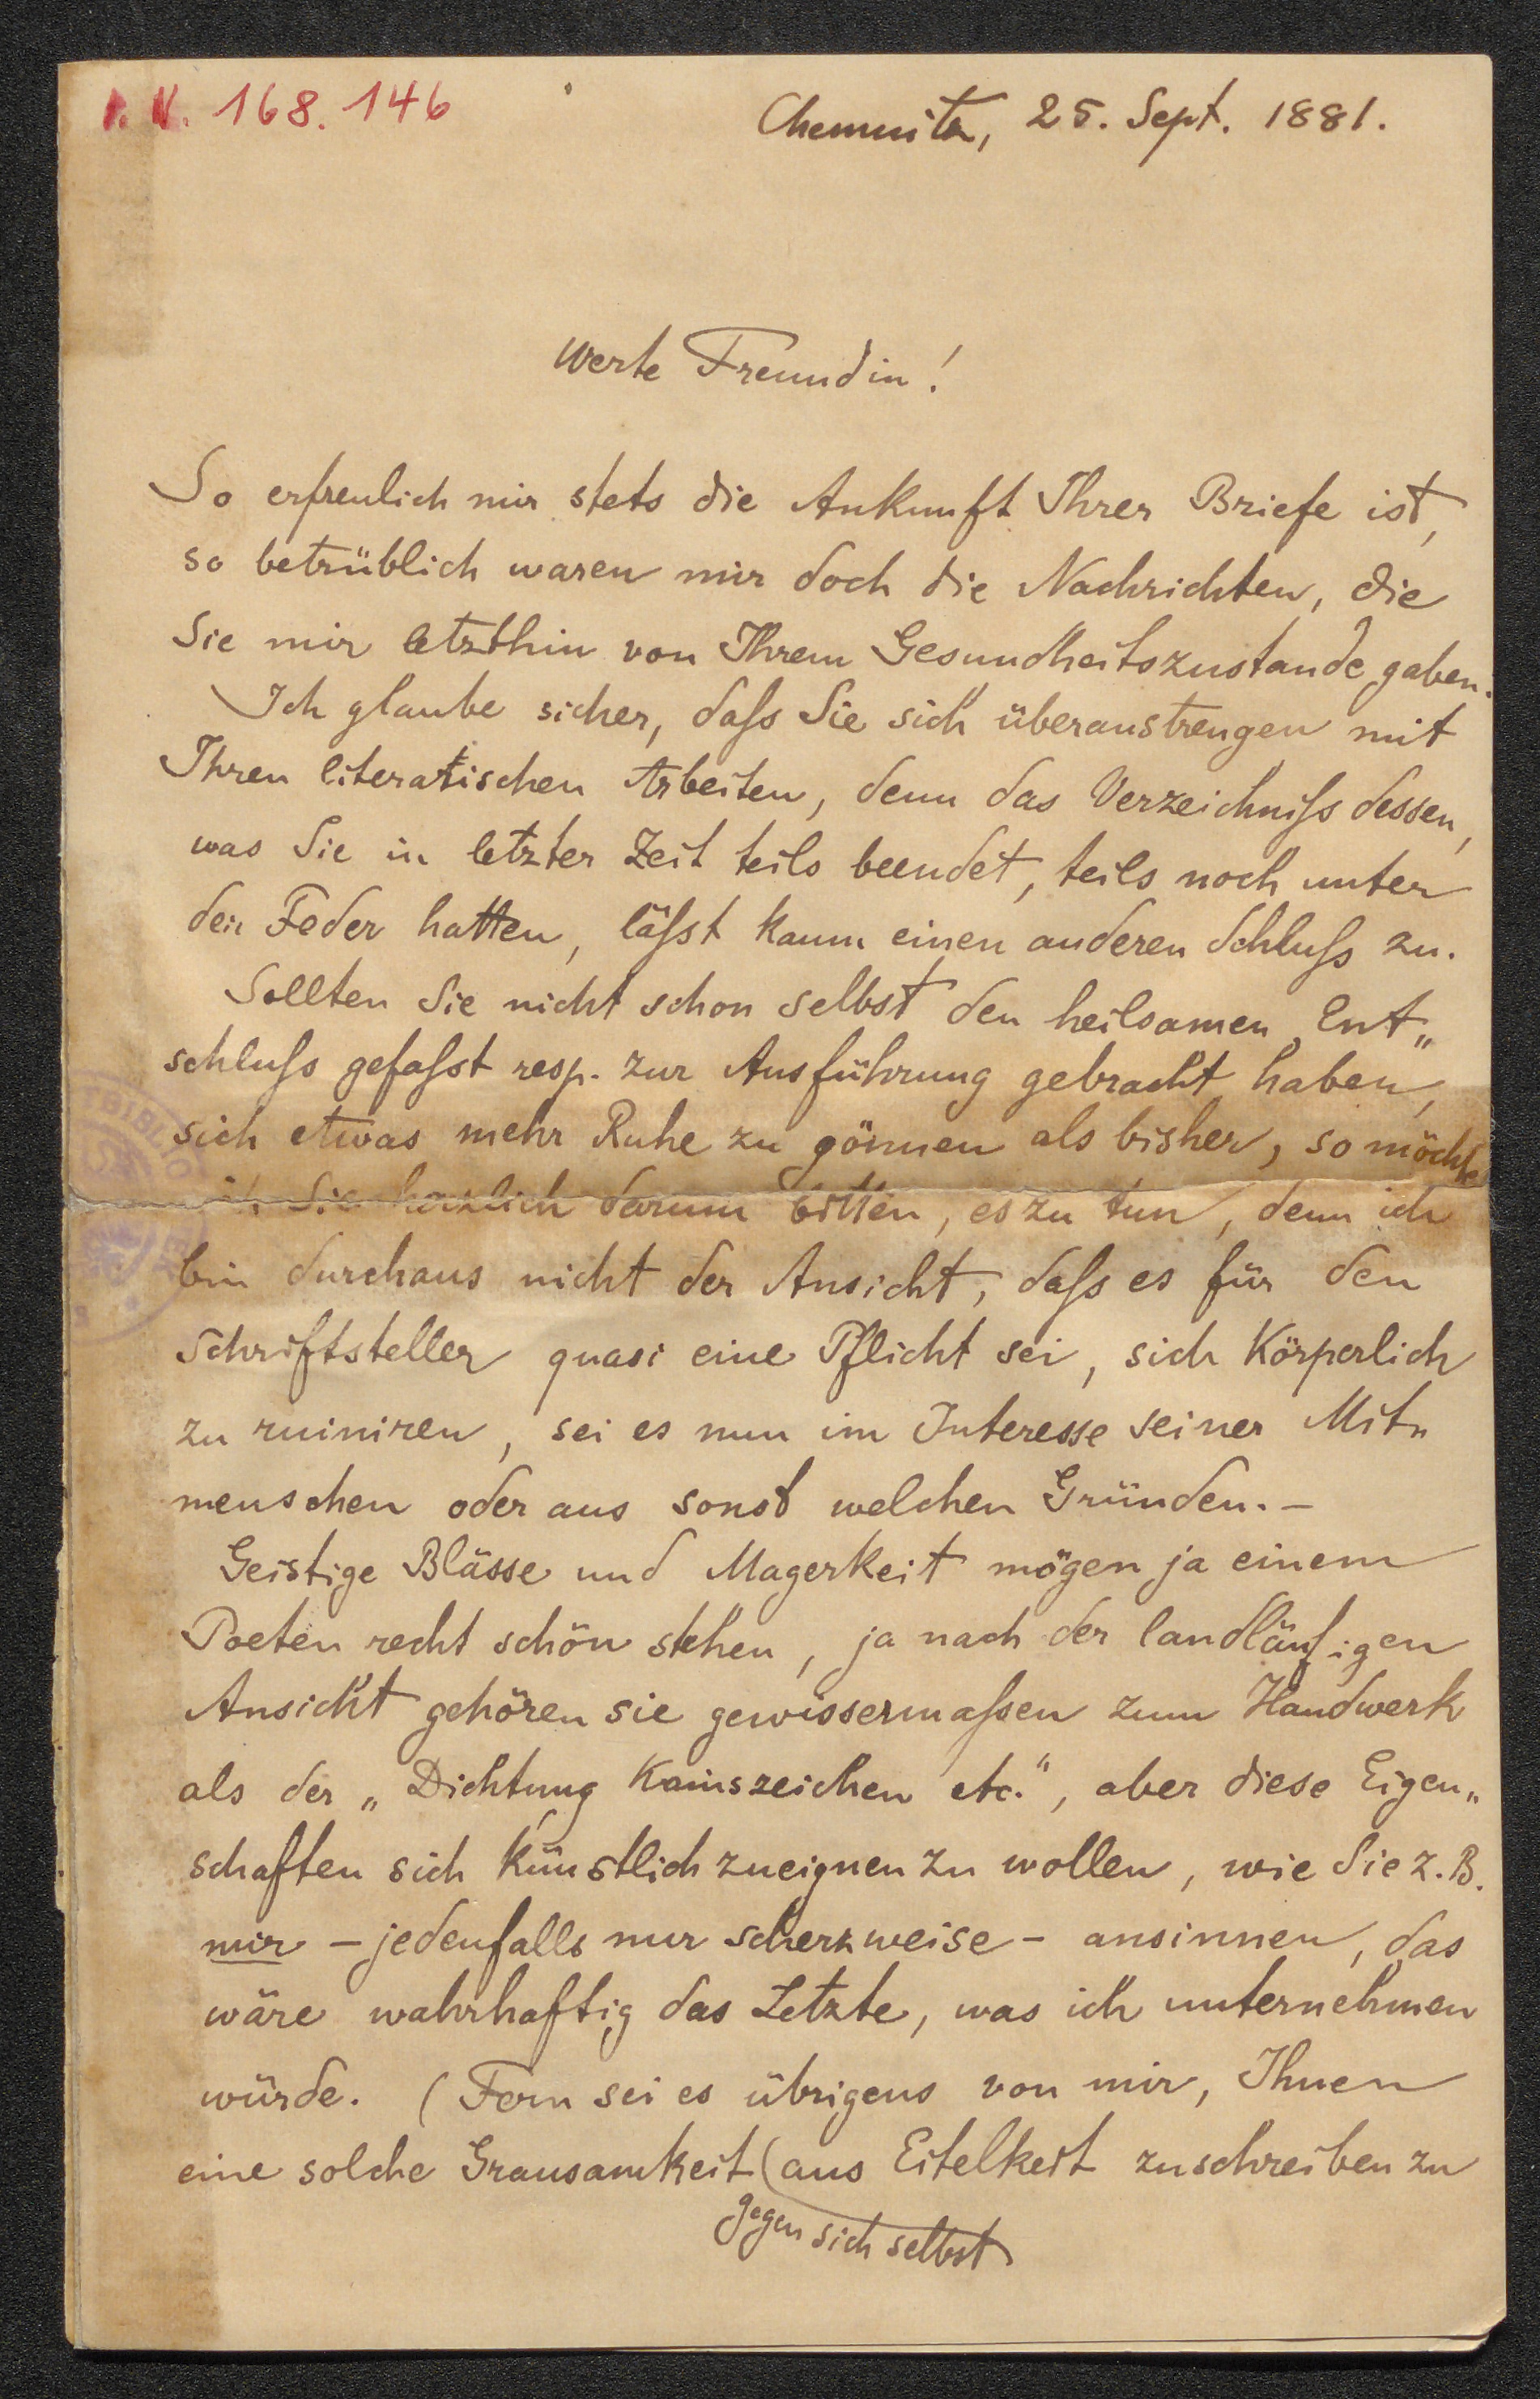 I. N. 168.146
Chemnitz, 25. Sept. 1881.
Werte Freundin!
So erfreulich mir stets die Ankunft Ihrer Briefe ist,
so betrüblich waren mir doch die Nachrichten, die
Sie mir letzthin von Ihrem Gesundheitszustande gaben.
Ich glaube sicher, daſs Sie sich überanstrengen mit
Ihren literarischen Arbeiten, denn das Verzeichniſs dessen,
was Sie in letzter Zeit teils beendet, teils noch unter
der Feder hatten, läſst kaum einen anderen Schluſs zu.
Sollten Sie nicht schon selbst den heilsamen Ent„
schluſs gefaſst resp. zur Ausführung gebracht haben,
sich etwas mehr Ruhe zu gönnen als bisher, so möchte
ich Sie herzlich darum bitten, es zu tun, denn ich
bin durchaus nicht der Ansicht, daſs es für den
Schriftsteller quasi eine Pflicht sei, sich Körperlich
zu ruiniren, sei es nun im Interesse seiner Mit„
menschen oder aus sonst welchen Gründen. –
Geistige Blässe und Magerkeit mögen ja einem
Poeten recht schön stehen, ja nach der landläufigen
Ansicht gehören sie gewissermaſsen zum Handwerk
als der „Dichtung Kainszeichen etc.“, aber diese Eigen„
schaften sich künstlich zueignen zu wollen, wie Sie z. B.
mir – jedenfalls nur scherzweise – ansinnen, das
wäre wahrhaftig das Letzte, was ich unternehmen
würde. (Fern sei es übrigens von mir, Ihnen
eine solche Grausamkeit (aus Eitelkeit zuschreiben zu
gegen sich selbst
BIBLIOTHEK